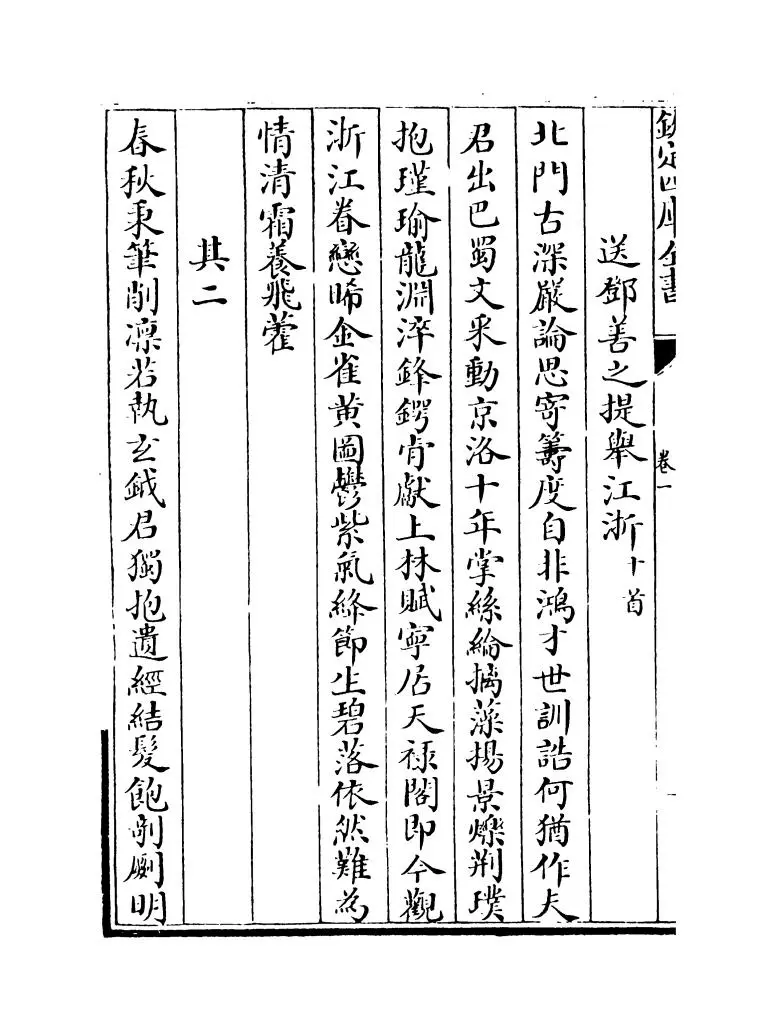 欽定四庫全書
卷一
送鄧善之提舉江浙十首
北門古深嚴論思寄籌度自非鴻才世訓誥何猶作夫
君出巴蜀文采動京洛十年掌絲綸摛藻揚景爍荆璞
抱瑾瑜龍淵淬鋒鍔肯獻上林賦寧居天禄閣即今觀
浙江眷戀晞金雀黄圖鬱紫氣絳節上碧落依然難為
情清霜養飛藿
其二
春秋秉筆削凛若執玄鉞君獨抱遺經結髮飽剞劂明